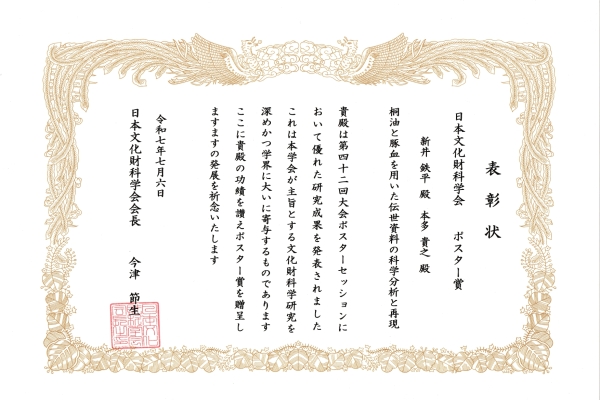 表彰状
日本文化財科学会　ポスター賞
新井 鉄平 殿　本多 貴之 殿
桐油と豚血を用いた伝世資料の科学分析と再現
貴殿は第四十二回大会ポスターセッションに
おいて優れた研究成果を発表されました
これは本学会が主旨とする文化財科学研究を
深めかつ学界に大いに寄与するものであります
ここに貴殿の功績を讃えポスター賞を贈呈し
ますますの発展を祈念いたします
令和七年七月六日
日本文化財科学会会長　今津 節生